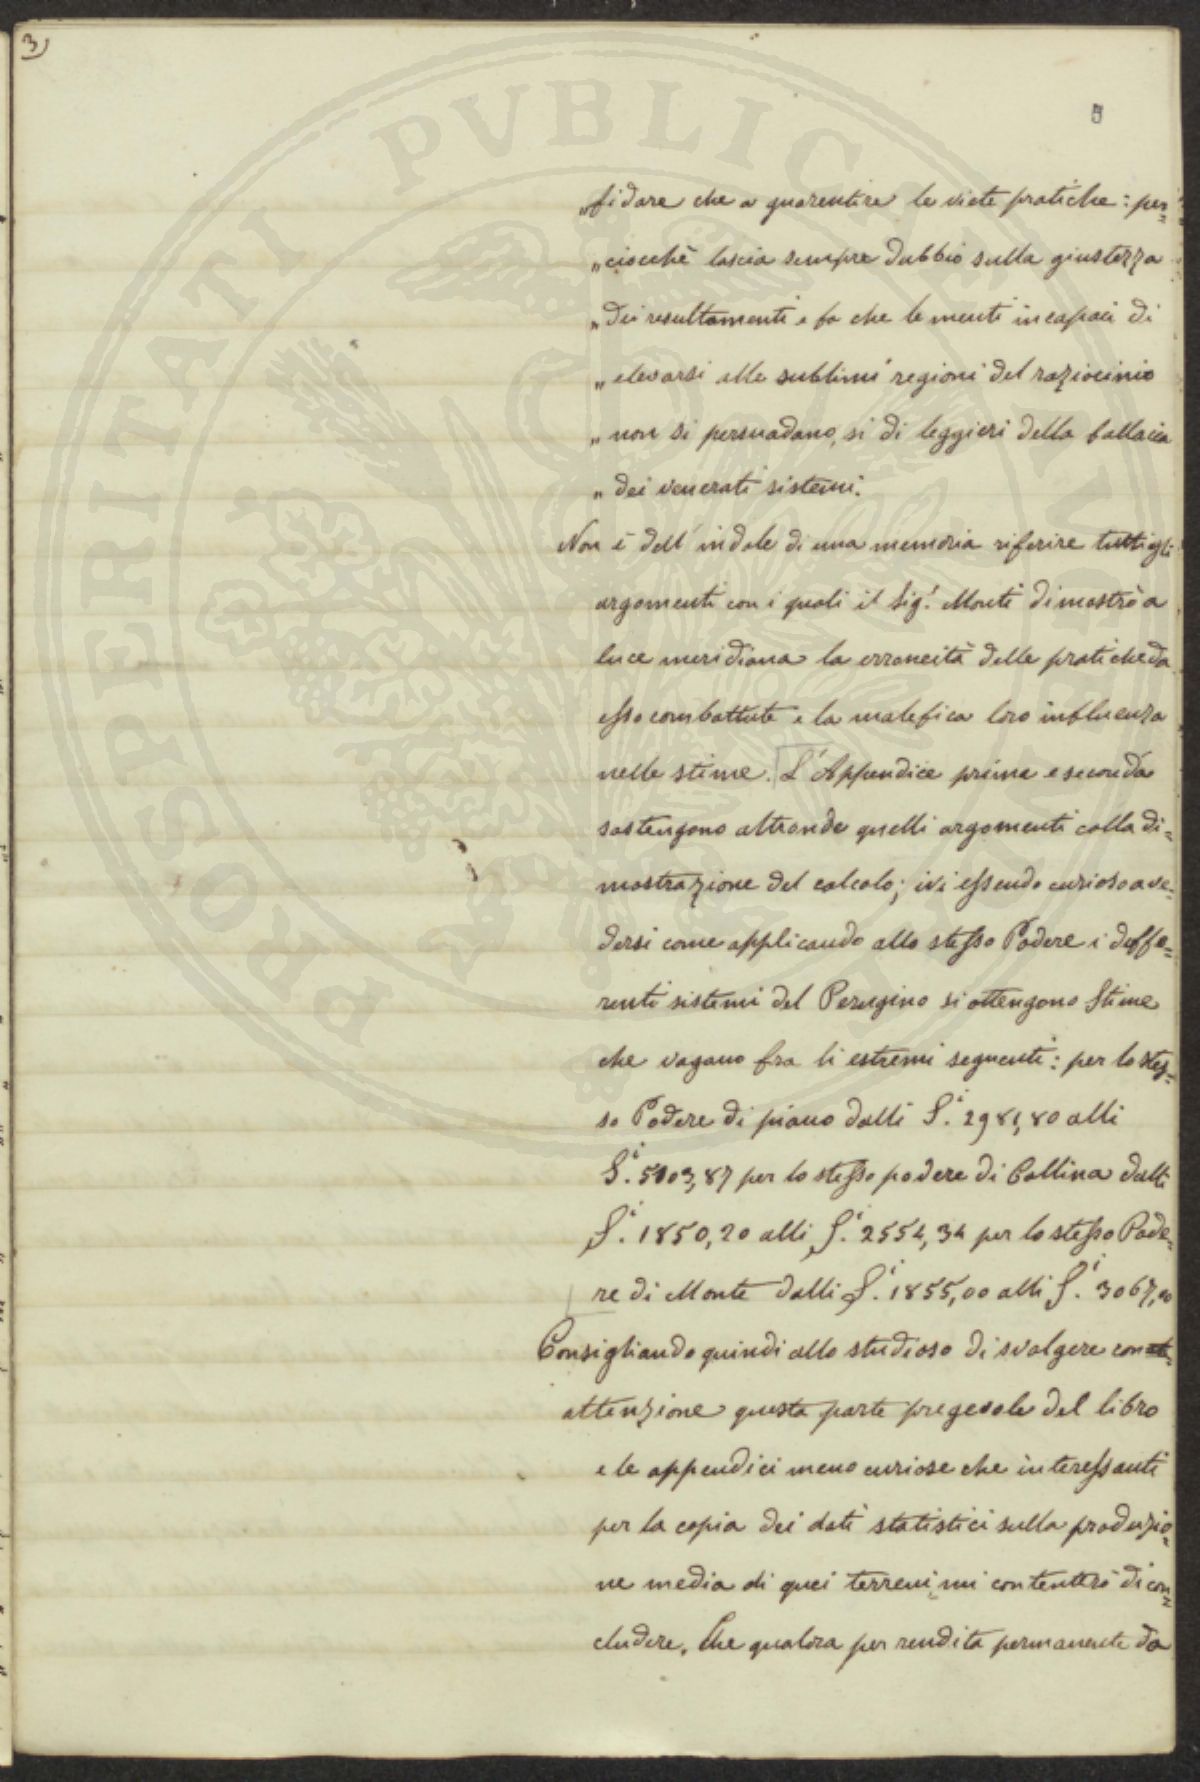 3)
5
PROSPERITATI PVBLICAE
„fidare che a guarentire le viete pratiche: per=
„ciocchè lascia sempre dubbio sulla giustezza
„dei resultamenti e fa che le menti incapaci di
„elevarsi alle sublimi regioni del raziocinio
„non si persuadano, sì di leggieri della fallacia
„dei venerati sistemi.
Non è dell'indole di una memoria riferire tutti gli
argomenti con i quali il Sig.r Monti dimostrò a
luce meridiana la erroneità delle pratiche da
esso combattute e la malefica loro influenza
nelle stime. L'Appendice prima e seconda
sostengono altronde quelli argomenti colla di=
mostrazione del calcolo; ivi essendo curioso a ve=
dersi come applicando allo stesso Podere i diffe=
renti sistemi del Perugino si ottengono Stime
che vagano fra li estremi seguenti: per lo stes=
so Podere di piano dalli S.i 2981,80 alli
S.i 5103,87 per lo stesso podere di Collina dalli
S.i 1850,20 alli S.i 2554,34 per lo stesso Pode=
re di Monte dalli S.i 1855,00 alli S.i 3067,00
Consigliando quindi allo studioso di svolgere con
attenzione questa parte pregevole del libro
e le appendici meno curiose che interessanti
per la copia dei dati statistici sulla produzio=
ne media di quei terreni mi contenterò di con=
cludere, Che qualora per rendita permanente da